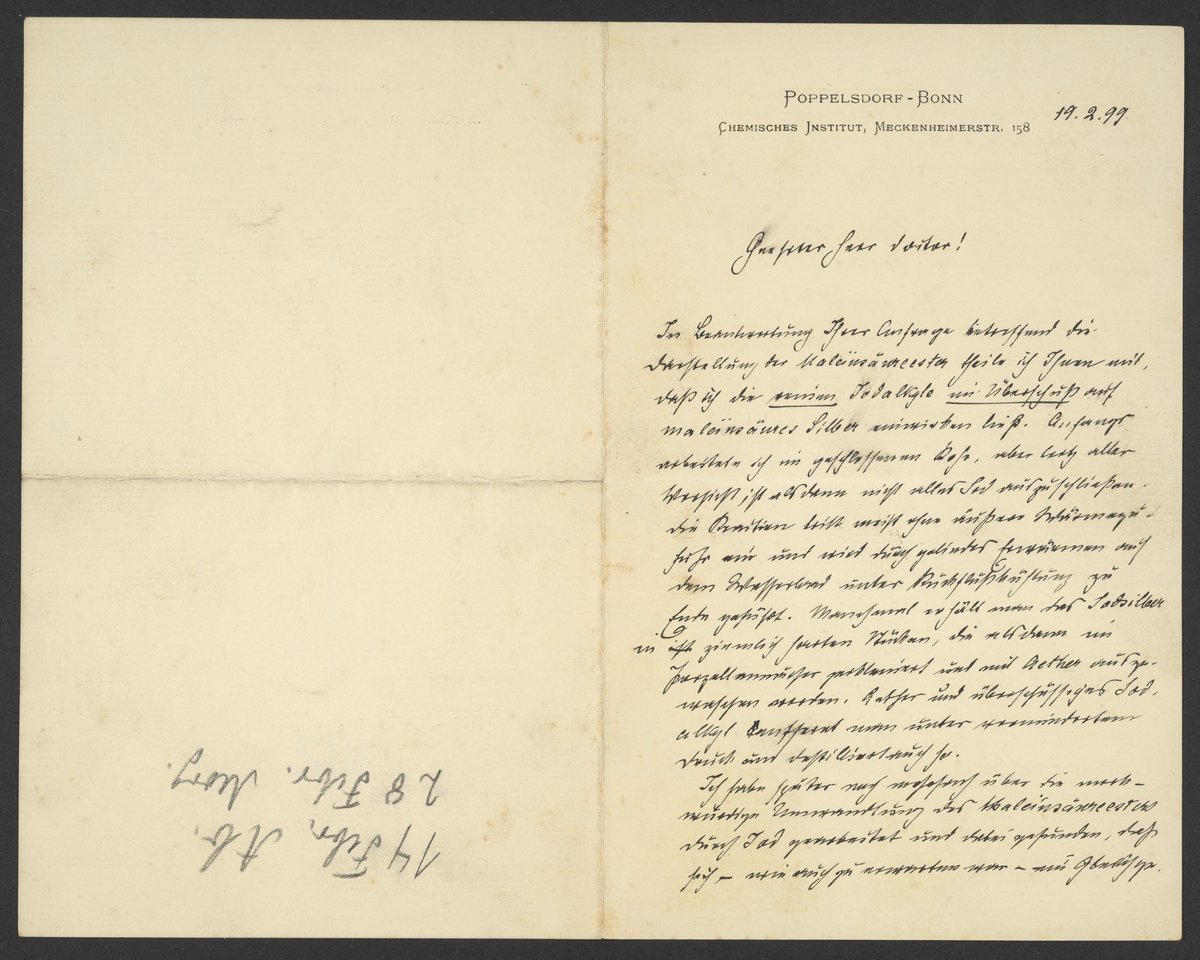 POPPELSDORF-BONN
CHEMISCHES INSTITUT, MECKENHEIMERSTR. 158
19.2.99
Geehrter Herr Doctor!
In Beantwortung Ihrer Anfrage betreffend die
Darstellung der Maleïnsäureester theile ich Ihnen mit,
daß ich die reinen Jodalkyle im Überschuß auf
maleïnsaures Silber einwirken ließ. Anfangs
arbeitete ich im geschlossenen Rohr, aber trotz aller
Vorsicht ist alsdann nicht alles Jod auszuschließen.
Die Reaktion tritt meist ohne äußere Wärmezu-
fuhr ein und wird durch gelindes Erwärmen auf
dem Wasserbad unter Rückflußkühlung zu
Ende geführt. Manchmal erhält man das Jodsilber
in ziemlich harten Stücken, die alsdann im
Porzellanmörser zerkleinert und mit Aether ausge-
waschen werden. Aether und überschüssiges Jod-
alkyl entfernt man unter vermindertem
Druck und destilliert auch so.
Ich habe später noch mehrfach über die merk-
würdige Umwandlung des Maleïnsäureesters
durch Jod gearbeitet und dabei gefunden, daß
sich – wie auch zu erwarten war – ein Gleichge-
14 Febr. Ab.
28 Febr. Morg.